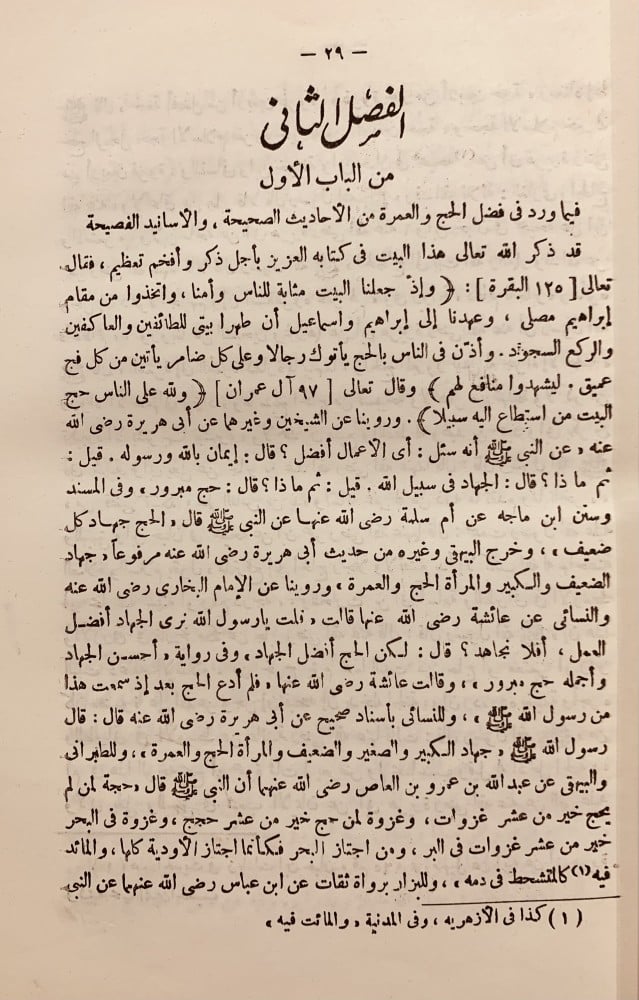 — ٢٩ —
الفصل الثانى
من الباب الأول
فيما ورد فى فضل الحج والعمرة من الأحاديث الصحيحة ، والأسانيد الفصيحة
قد ذكر الله تعالى هذا البيت فى كتابه العزيز بأجل ذكر وأفخم تعظيم ، فقال
تعالى [ ١٢٥ البقرة ] : ﴿ وإذ جعلنا البيت مثابة للناس وأمنا ، واتخذوا من مقام
إبراهيم مصلى ، وعهدنا إلى إبراهيم واسماعيل أن طهرا بيتى للطائفين والعاكفين
والركع السجود . وأذن فى الناس بالحج يأتوك رجالا وعلى كل ضامر يأتين من كل فج
عميق . ليشهدوا منافع لهم ﴾ وقال تعالى [ ٩٧ آل عمران ] ﴿ ولله على الناس حج
البيت من استطاع اليه سبيلا ﴾ . وروينا عن الشيخين وغيرهما عن أبى هريرة رضى الله
عنه « عن النبى ﷺ أنه سئل : أى الأعمال أفضل ؟ قال : إيمان بالله ورسوله . قيل :
ثم ما ذا ؟ قال : الجهاد فى سبيل الله . قيل : ثم ماذا ؟ قال : حج مبرور » وفى المسند
وسنن ابن ماجه عن أم سلمة رضى الله عنها عن النبى ﷺ قال « الحج جهاد كل
ضعيف » ، وخرج البيهقى وغيره من حديث أبى هريرة رضى الله عنه مرفوعاً « جهاد
الضعيف والكبير والمرأة الحج والعمرة » وروينا عن الإمام البخارى رضى الله عنه
والنسائى عن عائشة رضى الله عنها قالت « قلت يارسول الله نرى الجهاد أفضل
العمل ، أفلا نجاهد ؟ قال : لكن الحج أفضل الجهاد » وفى رواية « أحسن الجهاد
وأجمله حج مبرور » ، وقالت عائشة رضى الله عنها « فلم أدع الحج بعد إذ سمعت هذا
من رسول الله ﷺ » ، وللنسائى بأسناد صحيح عن أبى هريرة رضى الله عنه قال : قال
رسول الله ﷺ « جهاد الكبير والصغير والضعيف والمرأة الحج والعمرة » ، وللطبرانى
والبيهقى عن عبدالله بن عمرو بن العاص رضى الله عنهما أن النبى ﷺ قال « حجة لمن لم
يحج خير من عشر غزوات ، وغزوة لمن حج خير من عشر حجج ، وغزوة فى البحر
خير من عشر غزوات فى البر ، ومن اجتاز البحر فكأنما اجتاز الأودية كلها ، والمائد
فيه (١) كالمتشحط فى دمه » ، وللبزار برواة ثقات عن ابن عباس رضى الله عنهما عن النبى
( ١ ) كذا فى الأزهريه ، وفى المدنية « والمائت فيه »